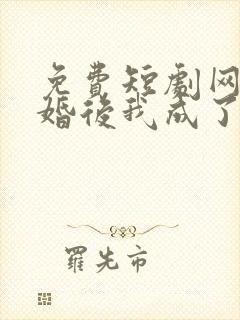 免費短劇网
婚後我成了
羅先市